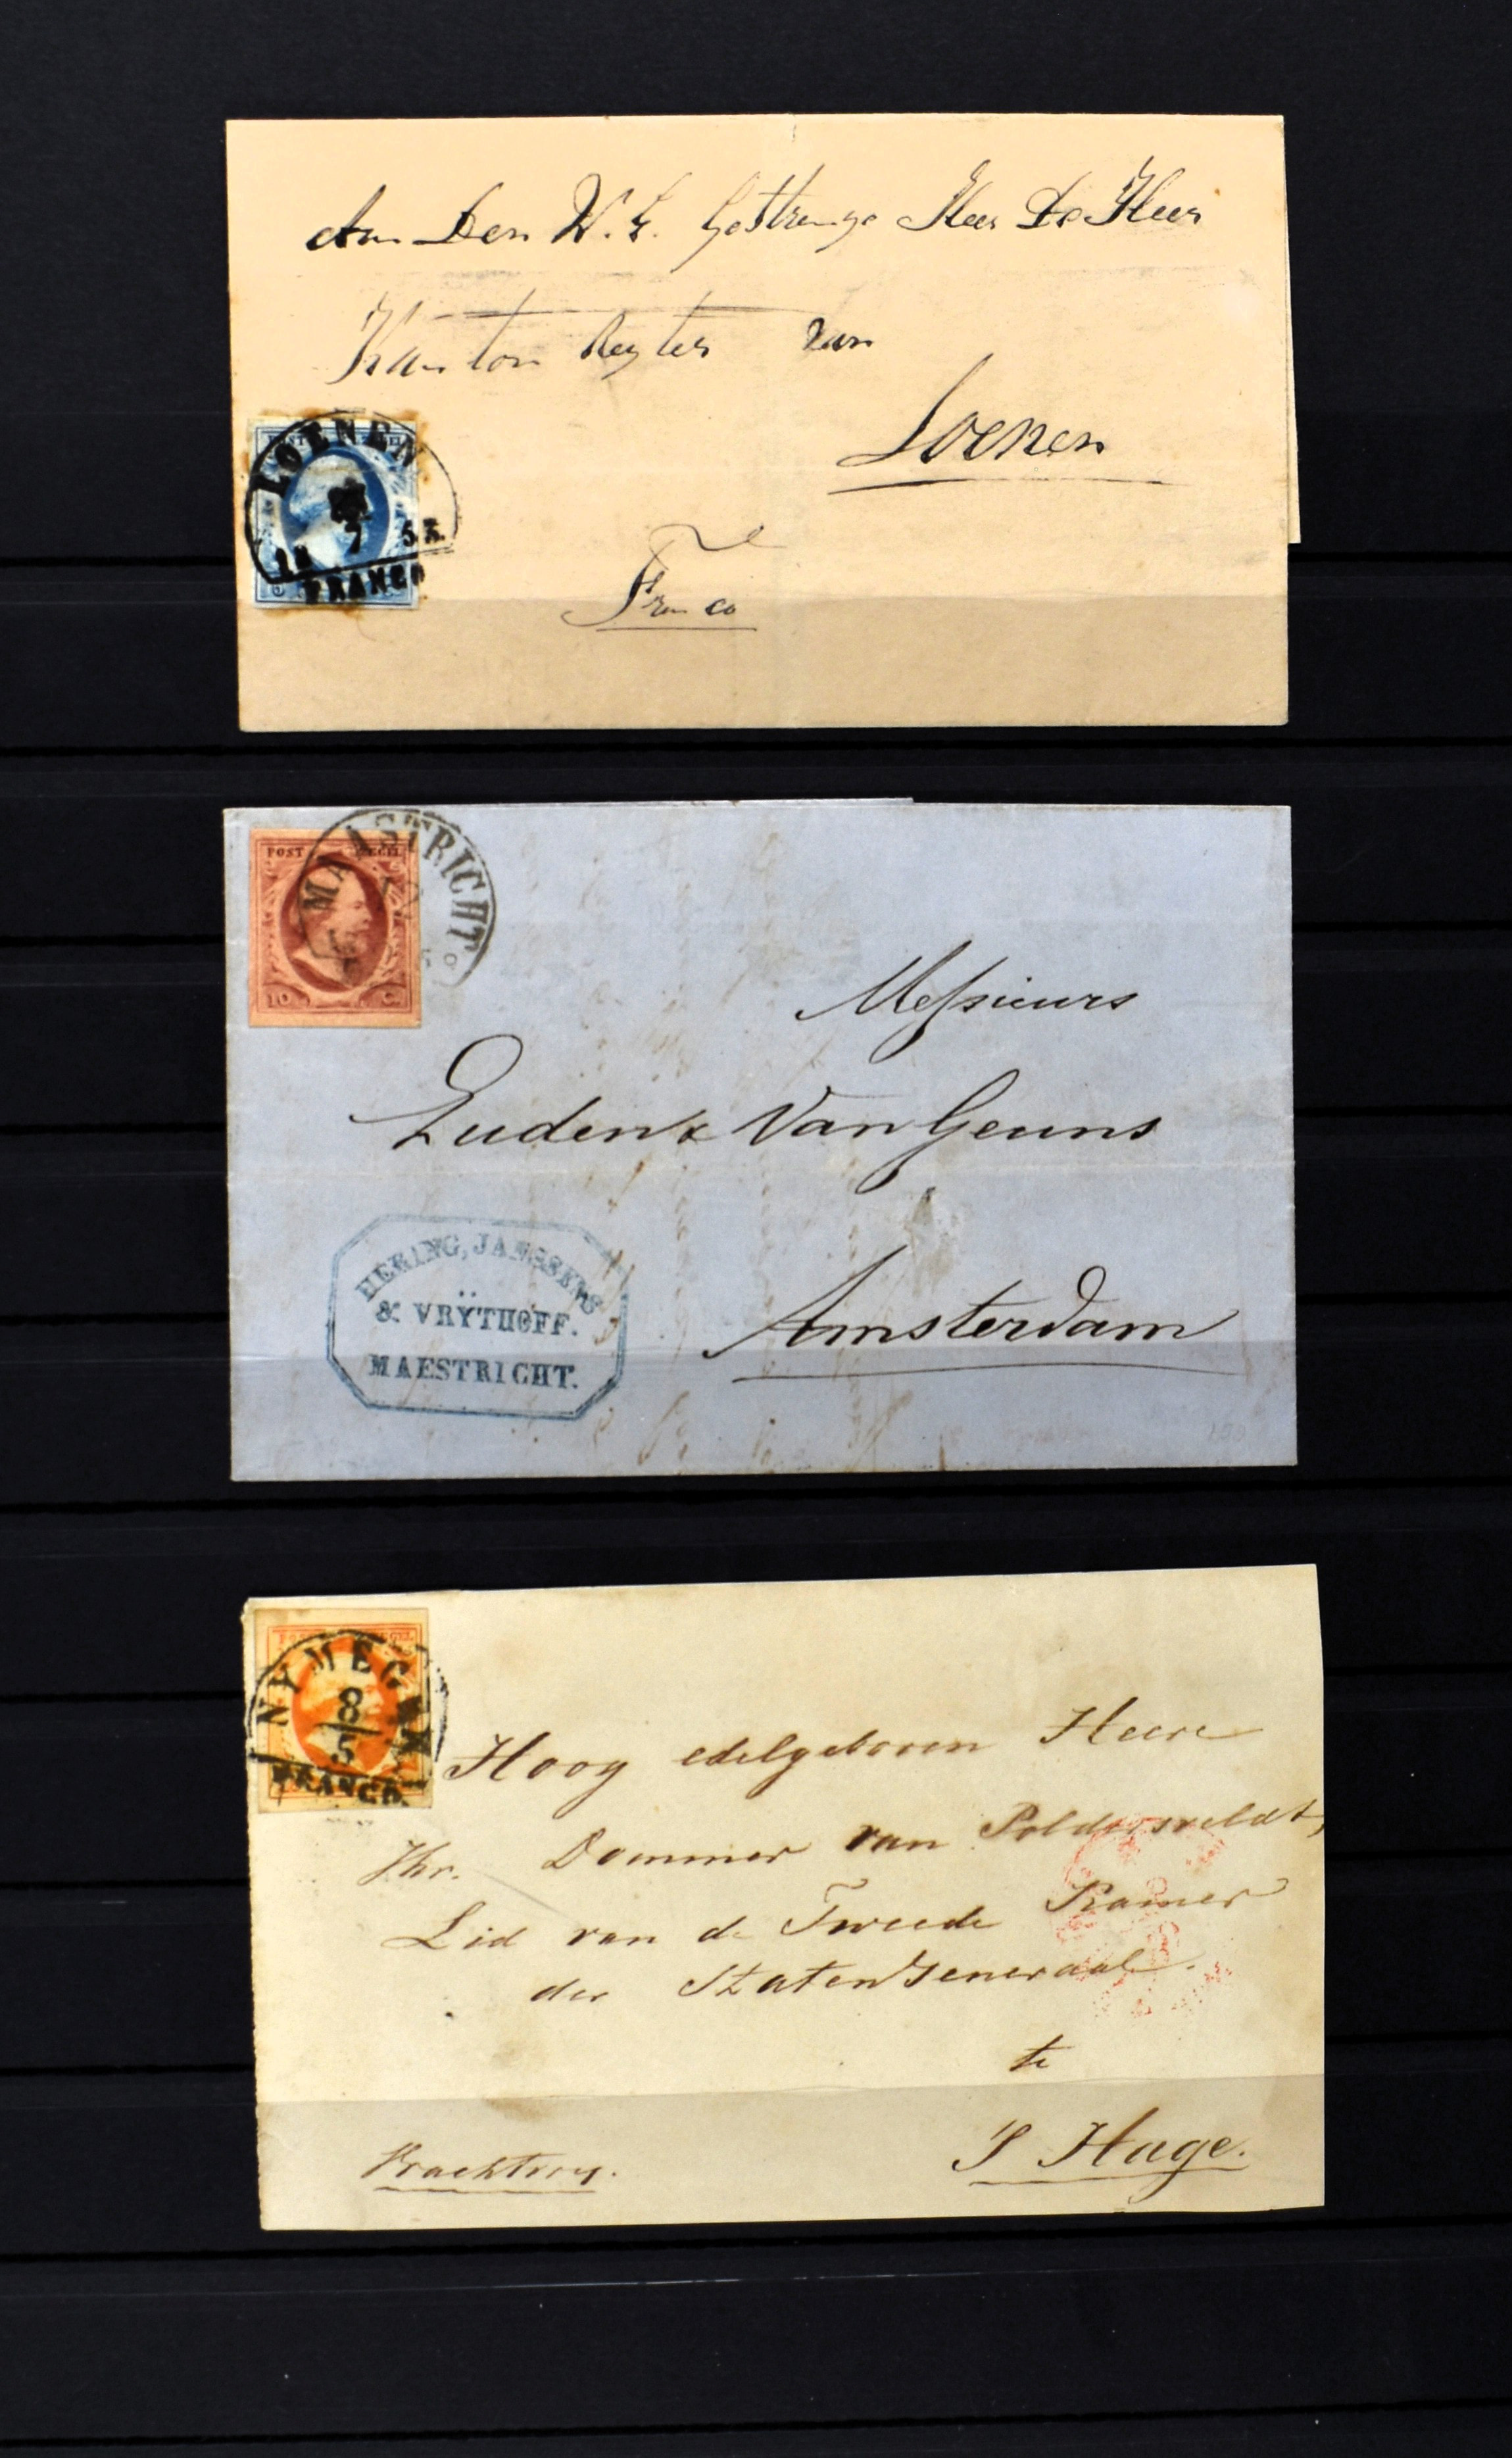 Aan Den W. E. Gestrenge Heer De Heer
Kanton Regter van
Loenen
Franco
LOENEN
7
FRANCO
POST
10 C.
MAASTRICHT
Messieurs
Luden & Van Geuns
Amsterdam
HERING, JANSSENS
& VRŸTHOFF.
MAESTRICHT.
NYMEGEN
8
5
FRANCO.
Hoog edelgeboren Heere
Jhr. Dommer van Poldersveldt,
Lid van de Tweede Kamer
der Staten Generaal.
te
S Hage.
Vrachtvry.